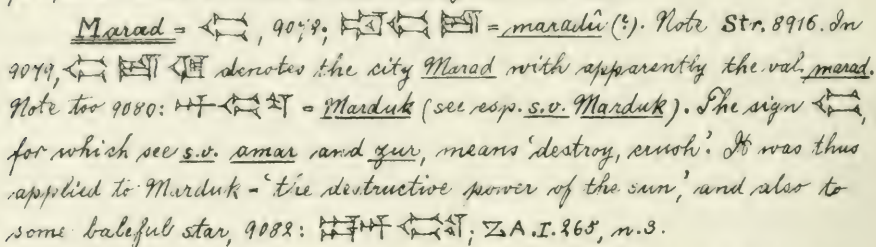 Marad = 𒀫, 9078; 𒀫 = maradû (?). Note Str. 8916. In
9079, 𒀫 𒆠 denotes the city Marad with apparently the val. marad.
Note too 9080: 𒀭𒀫𒌓 = Marduk (see esp. s.v. Marduk). The sign 𒀫,
for which see s.v. amar and zur, means 'destroy, crush.' It was thus
applied to Marduk - 'the destructive power of the sun,' and also to
some baleful star, 9082: 𒀭𒀫𒌓; ZA.I.265, n.3.